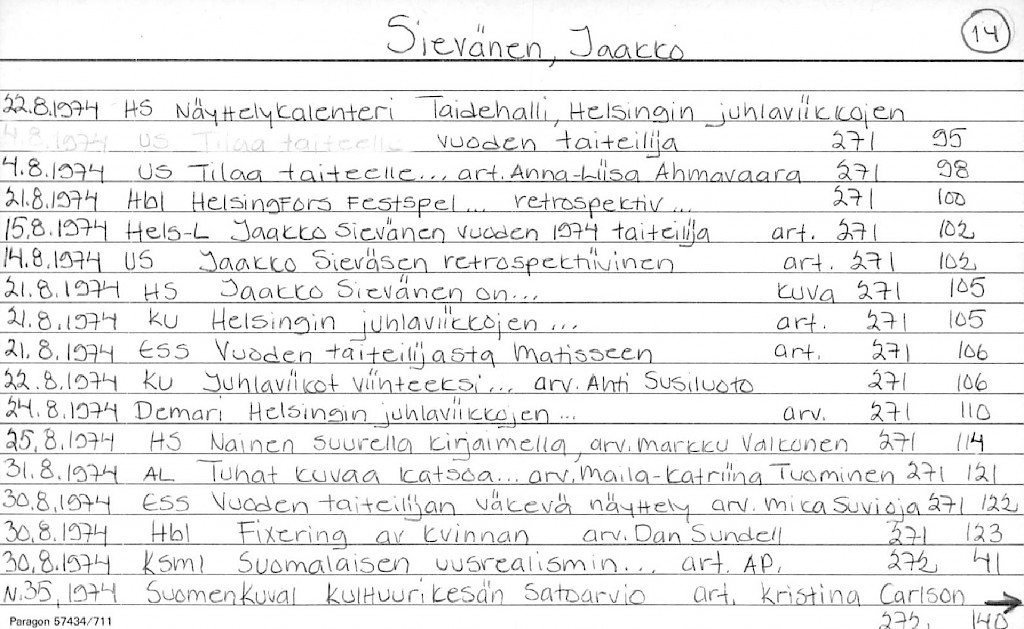 Sievänen, Jaakko
14
22.8.1974 HS Näyttelykalenteri Taidehalli, Helsingin juhlaviikkojen
4.8.1974 US Tilaa taiteelle vuoden taiteilija 271 95
4.8.1974 US Tilaa taiteelle... art. Anna-Liisa Ahmavaara 271 98
21.8.1974 Hbl Helsingfors Festspel... retrospektiv... 271 100
15.8.1974 Hels-L Jaakko Sievänen vuoden 1974 taiteilija art. 271 102
14.8.1974 US Jaakko Sieväsen retrospektiivinen art. 271 102
21.8.1974 HS Jaakko Sievänen on... kuva 271 105
21.8.1974 KU Helsingin juhlaviikkojen... art. 271 105
21.8.1974 ESS Vuoden taiteilijasta Matisseen art. 271 106
22.8.1974 KU Juhlaviikot viihteeksi... arv. Ahti Susiluoto 271 106
24.8.1974 Demari Helsingin juhlaviikkojen... arv. 271 110
25.8.1974 HS Nainen suurella kirjaimella, arv. Markku Valkonen 271 114
31.8.1974 AL Tuhat kuvaa katsoa... arv. Maila-Katriina Tuominen 271 121
30.8.1974 ESS Vuoden taiteilijan väkevä näyttely arv. Mika Suvioja 271 122
30.8.1974 Hbl Fixering av kvinnan arv. Dan Sundell 271 123
30.8.1974 Ksml Suomalaisen uusrealismin... art. AP. 272 41
N.35, 1974 SuomenKuval Kulttuurikesän satoarvio art. Kristina Carlson →
272. 140
Paragon 57434/711